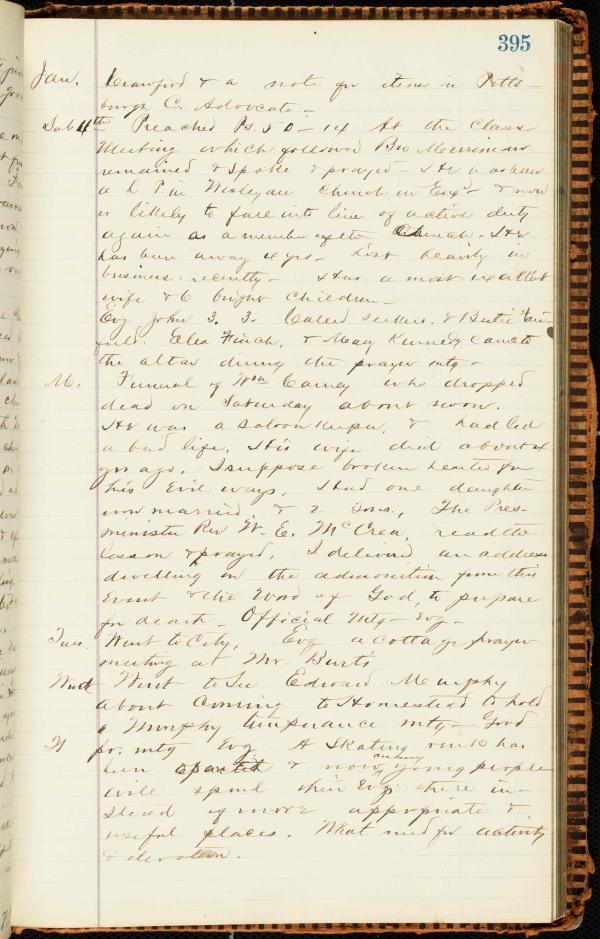 395
Jan. Crawford & a note for items in Pitts-
burgh C. Advocate -
Sab 4th Preached Ps. 50-14 At the Class
Meeting which followed Bro Merriman
remained & spoke & prayed - He has been
a L. P. in Wesleyan Church in Eng & now
is likely to fall into line of active duty
again as a member of the Church. He
has been away 4 yrs. Lost heavily in
business recently - Has a most excellent
wife & 6 bright children -
Evg John 3. 3. Called seekers. &
Eliza Finch, & Mary Kennedy came to
the altar during the prayer mtg -
M. Funeral of Wm Carney who dropped
dead on Saturday about noon.
He was a saloon keeper, & had led
a bad life. His wife died about 4
yrs ago, I suppose broken hearted for
his Evil ways. Had one daughter
now married & 2 sons, The Pres-
minister Rev W. E. McCrea, read the
lesson & prayed, I delivered an address
dwelling on the admonition from this
Event & the Word of God, to prepare
for death - Official Mtg - Evg -
Tues. Went to City, Evg a cottage prayer
meeting at Mr. Burt's
Wed Went to See Edward Murphy
about coming to Homestead to hold
a Murphy temperance mtg - Good
pr. mtg Evg A Skating rink has
been & now many young people
will spend their Evgs there in-
stead of more appropriate &
useful places. What need for activity
& devotion.